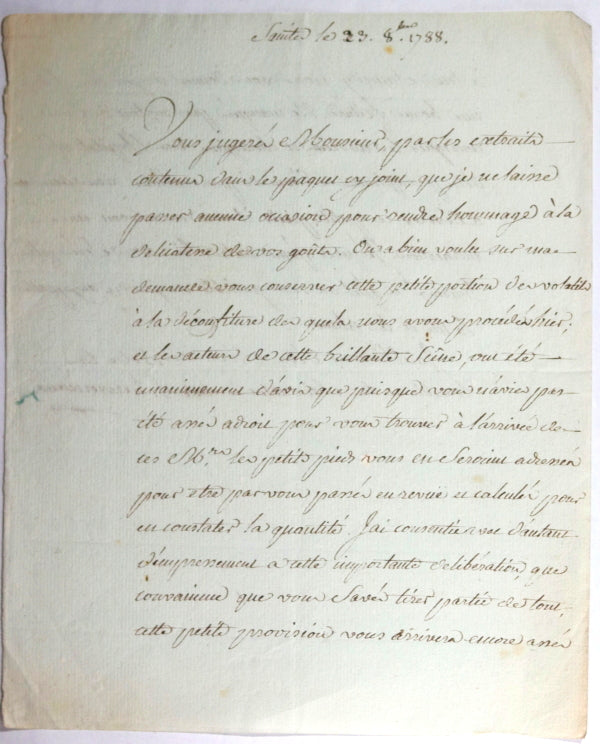 Saintes le 23. 8.bre 1788.
Vous jugerés Monsieur, par les extraits
contenus dans le paquet cy joint, que je ne laisse
passer aucune occasion pour rendre hommage à la
delicatesse de vos goûts. On a bien voulu sur ma
demande vous conserver cette petite portion de volatile
à la déconfiture de nous avons procédé hier;
et les acteurs de cette brillante Scêne, ont été
unanimement d'avis que puisque vous n'aviés pas
été assés adroit pour vous trouver à l'arrivée de
ces M.rs les petits pieds vous en Seroient adressés
pour être par vous passés en revüe et calculés pour
en constater la quantité. J'ai consenti avec d'autant
d'empressement a cette importante deliberation, que
convaincue que vous Savés tirer partie de tout,
cette petite provision vous arrivera encore assés